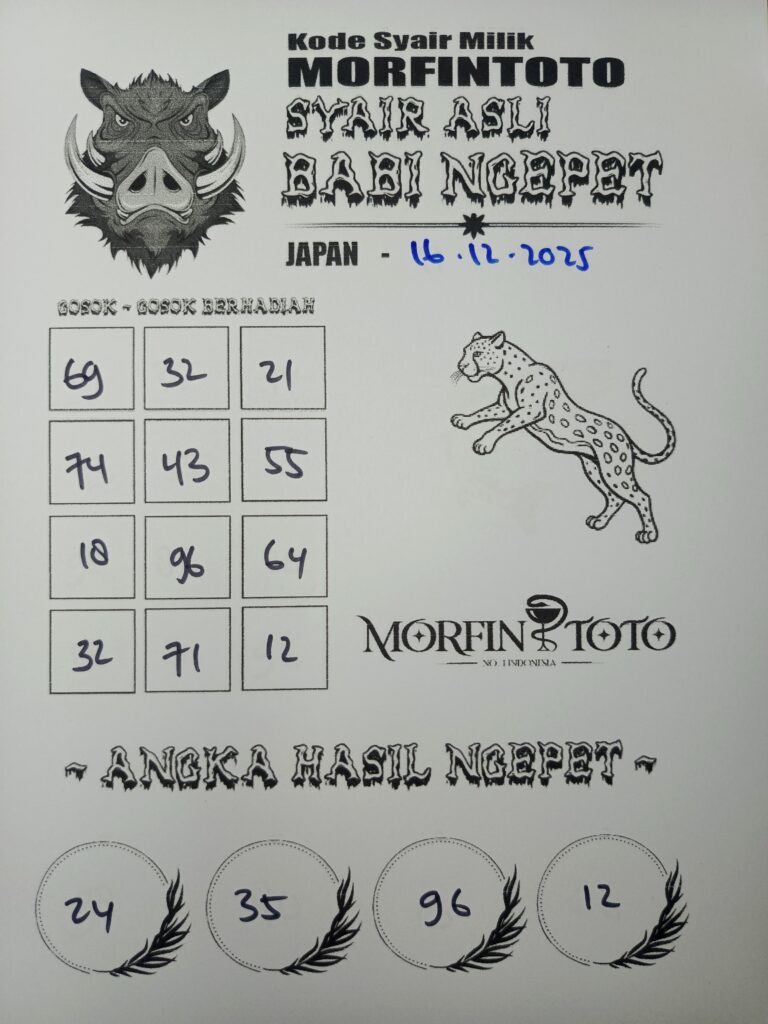 Kode Syair Milik
MORFINTOTO
SYAIR ASLI
BABI NGEPET
JAPAN - 16.12.2025
GOSOK - GOSOK BERHADIAH
69 32 21
74 43 55
18 96 64
32 71 12
MORFIN TOTO
NO. 1 INDONESIA
- ANGKA HASIL NGEPET -
24 35 96 12